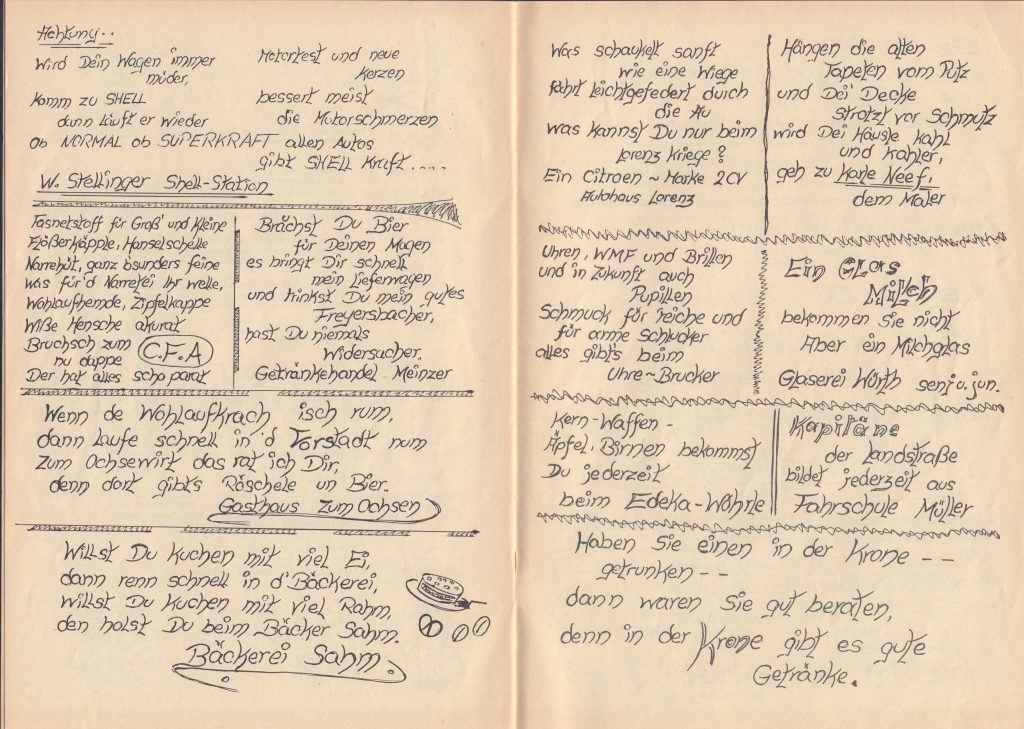 Achtung..
Wird Dein Wagen immer
müder,
komm zu SHELL
dann läuft er wieder
Ob NORMAL ob SUPERKRAFT allen Autos
Motortest und neue
Kerzen
bessert meist
die Motorschmerzen
gibt SHELL Kraft.....
W. Stellinger Shell-Station
Fasnetstoff für Groß' und Kleine
Flößerkäpple, Hanselschelle
Narrehüt, ganz bsunders feine
was für'd Narretei Ihr welle,
Wohlaufhemde, Zipfelkappe
Wiße Hensche akurat
Bruchsch zum
nu dappe
C.F.A
Der hat alles scho parat
Brächst Du Bier
für Deinen Magen
es bringt Dir schnell
mein Lieferwagen
und trinkst Du mein gutes
Freyersbacher,
hast Du niemals
Widersacher.
Getränkehandel Meinzer
Wenn de Wohlaufkrach isch rum,
dann laufe schnell in 'd Vorstadt num
Zum Ochsewirt das rat ich Dir,
denn dort gibts Röschele un Bier.
Gasthaus Zum Ochsen
Willst Du Kuchen mit viel Ei,
dann renn schnell in d'Bäckerei,
willst Du Kuchen mit viel Rahm,
den holst Du beim Bäcker Sahm.
Bäckerei Sahm.
Was schaukelt sanft
wie eine Wiege
fährt leichtgefedert durch
die Au
was kannst Du nur beim
Lorenz kriege?
Ein Citroen ~ Marke 2CV
Autohaus Lorenz
Hängen die alten
Tapeten vom Putz
und Dei' Decke
strotzt vor Schmutz
wird Dei Häusle kahl
und kahler,
geh zu Karle Neef,
dem Maler
Uhren, WMF und Brillen
und in Zukunft auch
Pupillen
Schmuck für reiche und
für arme Schlucker
alles gibt's beim
Uhre~Brucker
Ein GLas
Milch
bekommen Sie nicht
Aber ein Milchglas
Glaserei Würth sen.u.jun.
Kern-Waffen -
Äpfel, Birnen bekommst
Du jederzeit
beim Edeka-Wöhrle
Kapitäne
der Landstraße
bildet jederzeit aus
Fahrschule Müller
Haben Sie einen in der Krone --
getrunken --
dann waren Sie gut beraten,
denn in der Krone gibt es gute
Getränke.